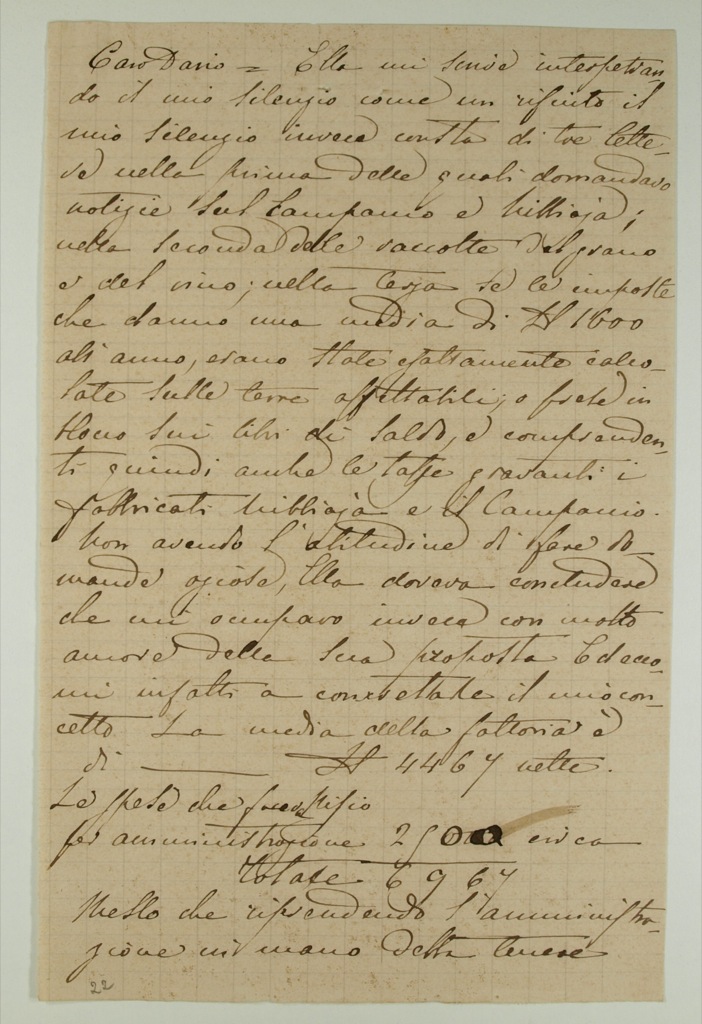 Caro Dario = Ella mi scrive interpetran-
do il mio silenzio come un rifiuto il
mio silenzio invece consta di tre lette-
re nella prima delle quali domandavo
notizie sul Campanio e Nibbiaja;
nella seconda delle raccolte del grano
e del vino; nella terza se le imposte
che danno una media di 1600
all'anno, erano state esattamente calco-
late sulle terre affittabili, o prese in
sui libri di saldo, e comprenden-
ti quindi anche le tasse gravanti i
fabbricati Nibbiaja e il Campanio.
Non avendo l'abitudine di fare do-
mande oziose, Ella doveva concludere
che mi occupavo invece con molto
amore della sua proposta Edecco-
mi infatti a concretarle il mio con-
cetto La media della fattoria è
di ——— 4467 nette.
Le spese che
per amministrazione 2500 circa
Totale 6967
Messo che riprendendo l'amministra-
zione in mano della tenere
22